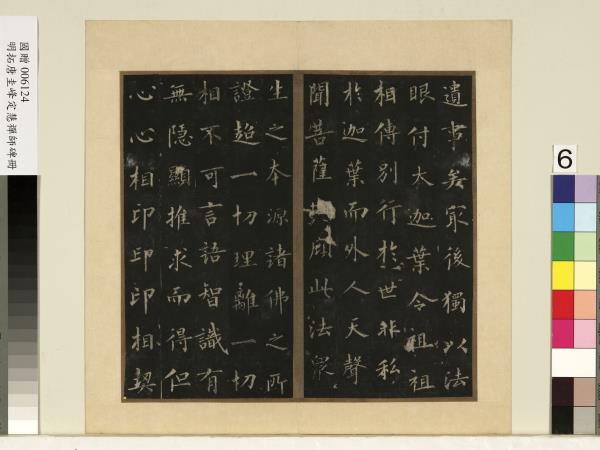 遺事矣冣後獨以法
眼付大迦葉令祖祖
相傳別行於世非私
於迦葉而外人天聲
聞菩薩顧此法衆
生之本源諸佛之所
證超一切理離一切
相不可言語智識有
無隱顯推求而得但
心心相印印印相契
國贈 006124
明拓唐圭峰定慧禪師碑冊
6